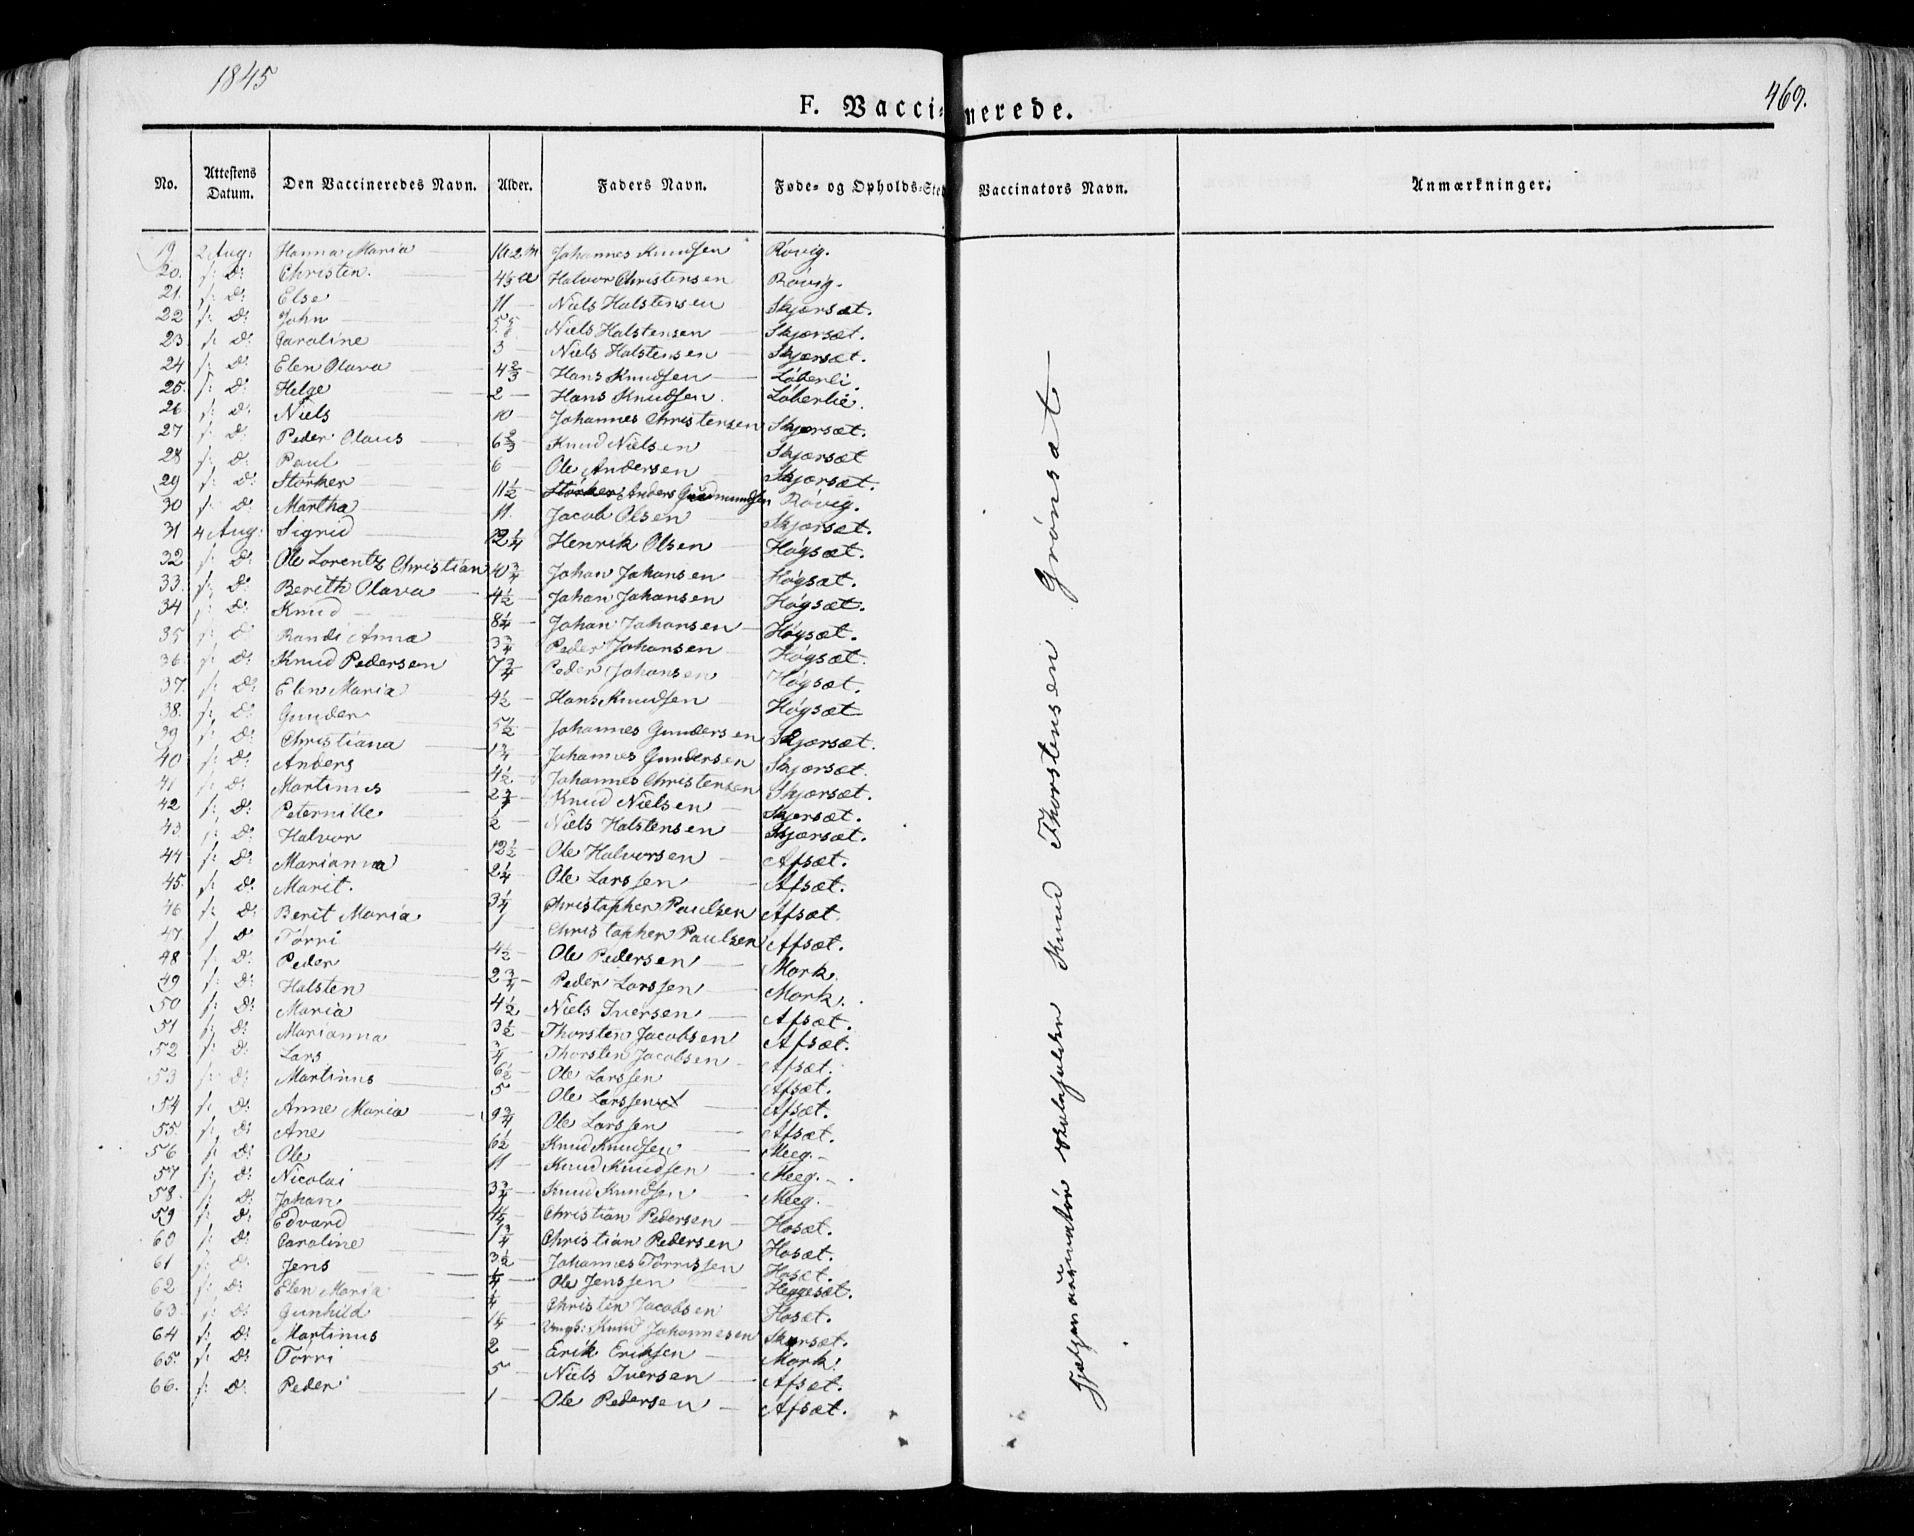 1845
469.
F. Vaccinerede.
No. Attestens Datum. Den Vaccineredes Navn. Alder. Faders Navn. Føde- og Opholds-Sted Vaccinators Navn. Anmærkninger.
19 2 Aug: Hanna Maria Johannes Knudsen Røvig.
20. s: D: Christen. Halvor Christensen Røvig.
21. s: D: Else 11 Niels Halstensen Skjørsæt.
22 s: D: John Niels Halstensen Skjørsæt.
23 s: D: Caroline 3 Niels Halstensen Skjørsæt.
24 s: D: Elen Olava 4 2/3 Hans Knudsen Løberli.
25. s: D: Helge 2 Hans Knudsen. Løberlie.
26 s: D: Niels 10 Johannes Christensen Skjørsæt.
27 s: D: Peder Olaus 6 2/3 Knud Nielsen Skjørsæt
28 s: D: Paul 6 Ole Andersen Skjørsæt.
29 s: D: Størker 11 1/2 Størker Anders Gudmundsen Røvig.
30 s: D: Martha 11. Jacob Olsen Skjørsæt.
31 4 Aug: Sigrid 12 1/4 Henrik Olsen Høgsæt.
32 s: D: Ole Lorentz Christian 10 3/4 Johan Johansen Høgsæt.
33. s: D: Berith Olava 4 1/2 Johan Johansen Høgsæt.
34 s: D: Knud 8 1/4 Johan Johansen Høgsæt.
35 s: D: Randi Anna 3 3/4 Peder Johansen Høgsæt.
36. s: D: Knud Pedersen 7 3/4 Peder Johansen Høgsæt.
37. s: D: Elen Maria 4 1/2 Hans Knudsen Høgsæt
38. s: D: Gunder 5 1/2 Johannes Gundersen Skjørsæt.
39 s: D: Christiana 1 3/4 Johannes Gundersen Skjørsæt.
40 s: D: Anders 4 1/2 Johannes Christensen Skjørsæt.
41 s: D: Martinus 2 3/4 Knud Nielsen Skjørsæt.
42 s: D: Peternille 1/2 Niels Halstensen Skjørsæt.
43. s: D: Halvor 12 1/2 Ole Halvorsen Afsæt.
44 s: D: Marianna 2 1/4 Ole Larssen Afsæt.
45. s: D: Marit. 3 1/4 Christopher Paulsen Afsæt.
46 s: D: Berit Maria 1 Christopher Paulsen Afsæt.
47 s: D: Tørri 4 1/2 Ole Pedersen Mork.
48 s: D: Peder 2 3/4 Peder Larssen Mork.
49 s: D: Halsten 4 1/2 Niels Iversen Afsæt.
50 s: D: Maria 3 1/2 Thorsten Jacobsen Afsæt.
51 s: D: Marianna 3/4 Thorsten Jacobsen Afsæt.
52 s: D: Lars 6 1/2 Ole Larssen Afsæt.
53 s: D: Martinus 5 Ole Larssen Afsæt.
54 s: D: Anne Maria 9 3/4 Ole Larssen Afsæt.
55. s: D: Ane 6 1/2 Knud Knudsen Meeg.
56 s: D: Ole 11 Knud Knudsen Meeg.
57 s: D: Nicolai 3 3/4 Knud Knudsen Meeg.
58. s: D: Johan 4 1/4 Christian Pedersen Hosæt.
59 s: D: Edvard 1 3/4 Christian Pedersen Hosæt.
60 s: D: Caroline 3 1/2 Johannes Tørrissen Hosæt.
61 s: D: Jens 1/4 Ole Jenssen Heggesæt.
62 s: D: Elen Maria 1/4 Christen Jacobsen Hosæt.
63. s: D: Gunhild 1 1/4 Ungk: Knud Johannesen Skjørsæt.
64 s: D: Martinus 2 Erik Eriksen Mork.
65. s: D: Tørri 5 Niels Iversen Afsæt.
66. s: D: Peder 1 Ole Pedersen Afsæt.
Hjelpevaccinatør Skoleholder Knud Thorstensen Grønsæt